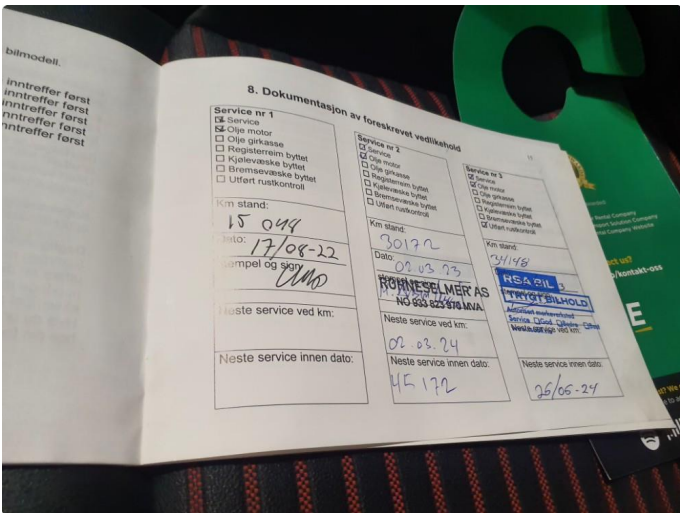 bilmodell.
inntreffer først
inntreffer først
inntreffer først
inntreffer først
inntreffer først
8. Dokumentasjon av foreskrevet vedlikehold
Service nr 1
Service
Olje motor
Olje girkasse
Registerreim byttet
Kjølevæske byttet
Bremsevæske byttet
Utført rustkontroll
Km stand:
15 048
Dato:
17/08-22
Stempel og sign
Neste service ved km:
Neste service innen dato:
Service nr 2
Service
Olje motor
Olje girkasse
Registerreim byttet
Kjølevæske byttet
Bremsevæske byttet
Utført rustkontroll
Km stand:
30172
Dato:
02.03.23
RØHNESELMER AS
NO 933 823 970 MVA
Neste service ved km:
02.03.24
Neste service innen dato:
45 172
Service nr 3
Service
Olje motor
Olje girkasse
Registerreim byttet
Kjølevæske byttet
Bremsevæske byttet
Utført rustkontroll
Km stand:
34148
3
RSA BIL
TRYGT BILHOLD
Autorisert merkeverksted
Service
Neste service ved km:
Neste service innen dato:
26/05-24
Rental Company
Transport Solution Company
Rental Company Website
ct us?
o/kontakt-oss
E